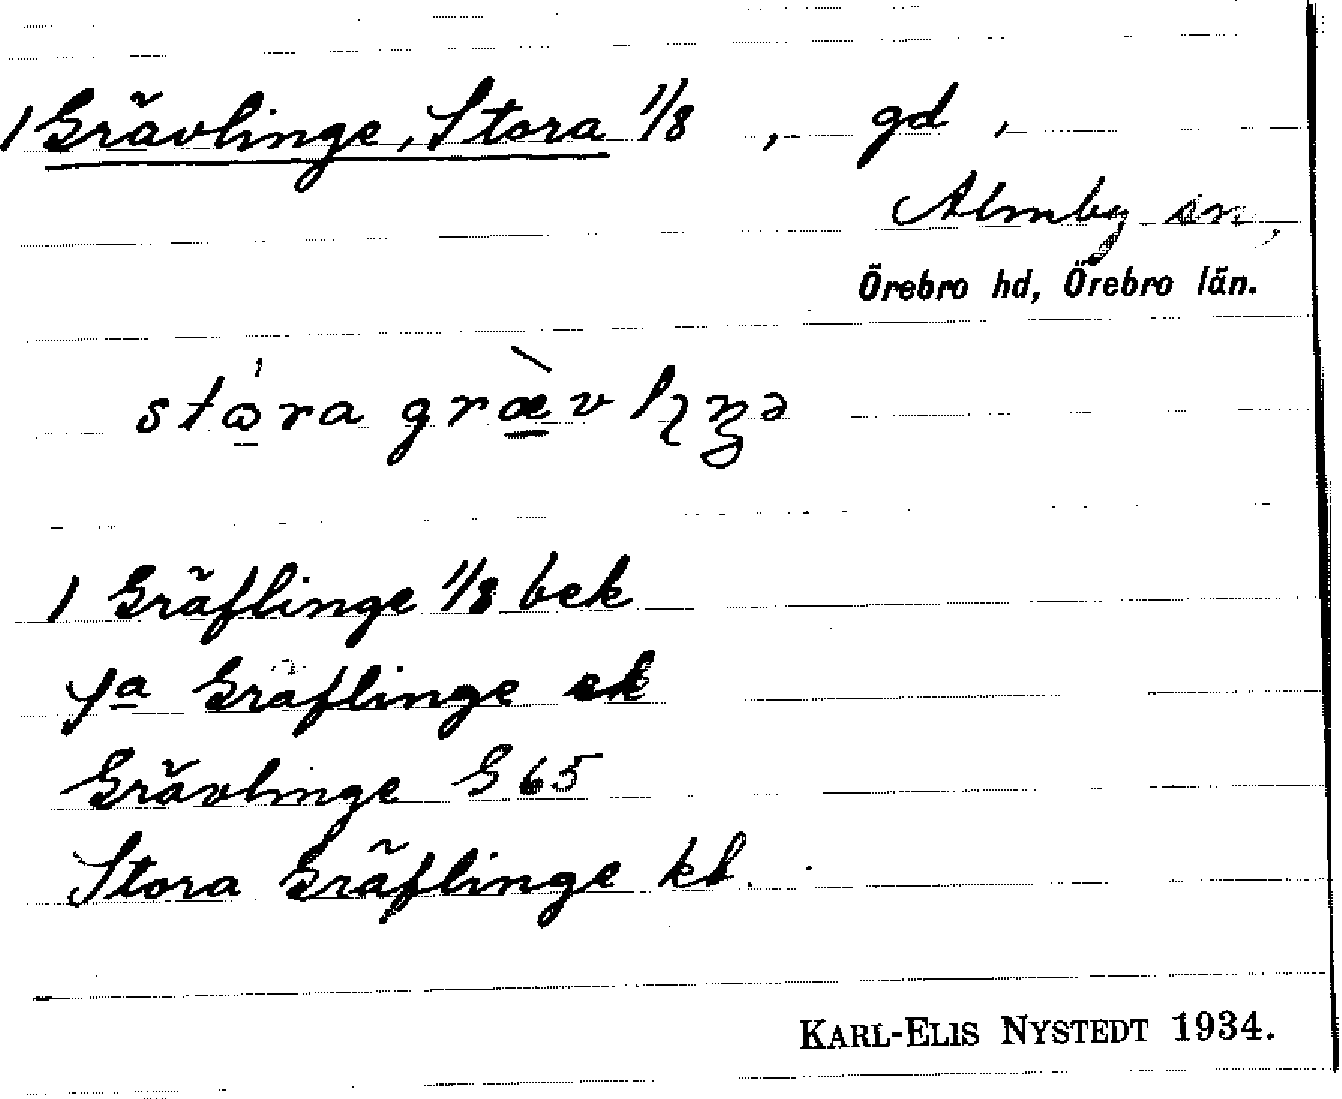 1 Grävlinge, Stora 1/8, gd,
Almby sn,
Örebro hd, Örebro län.
stó̱ra græ̱̀vlıŋə
1 Gräflinge 1/8 bek
Sa Gräflinge ek
Grävlinge G 65
Stora Gräflinge kb.
KARL-ELIS NYSTEDT 1934.